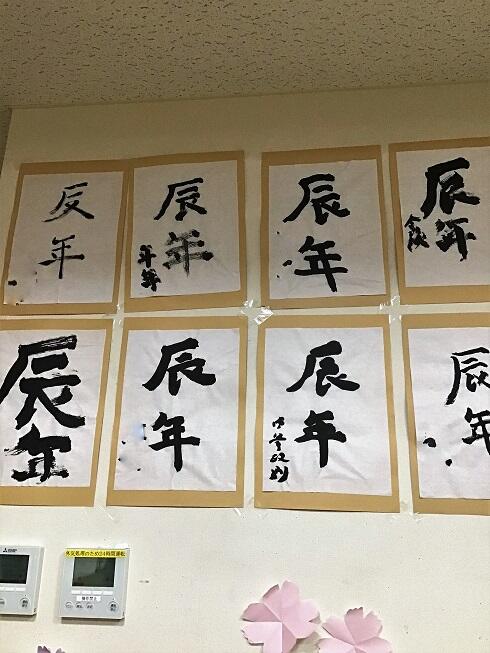 反年
辰年
年年
辰年
辰年
辰年
辰年
辰年
辰年
外気処理のため24時間運転